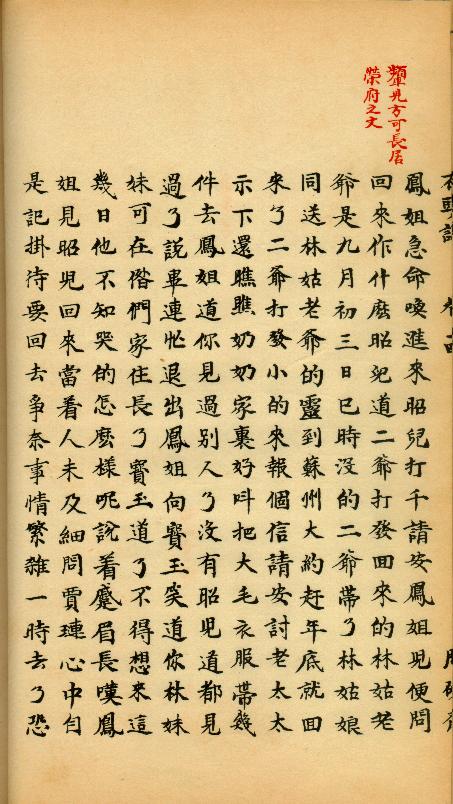 顰兒方可長居
榮府之文
鳳姐急命喚進來昭兒打千請安鳳姐見便問
回來作什麽昭兒道二爺打發回來的林姑老
爺是九月初三日巳時沒的二爺帶了林姑娘
同送林姑老爺的靈到蘇州大約赶年底就回
來了二爺打發小的來報個信請安討老太太
示下還瞧瞧奶奶家裏好呌把大毛衣服帶幾
件去鳳姐道你見過別人了沒有昭兒道都見
過了說畢連忙退出鳳姐向寶玉笑道你林妹
妹可在偺們家住長了寶玉道了不得想來這
幾日他不知哭的怎麽樣呢說着蹙眉長嘆鳳
姐見昭兒回來當着人未及細問賈璉心中自
是記掛待要回去爭奈事情繁雜一時去了恐